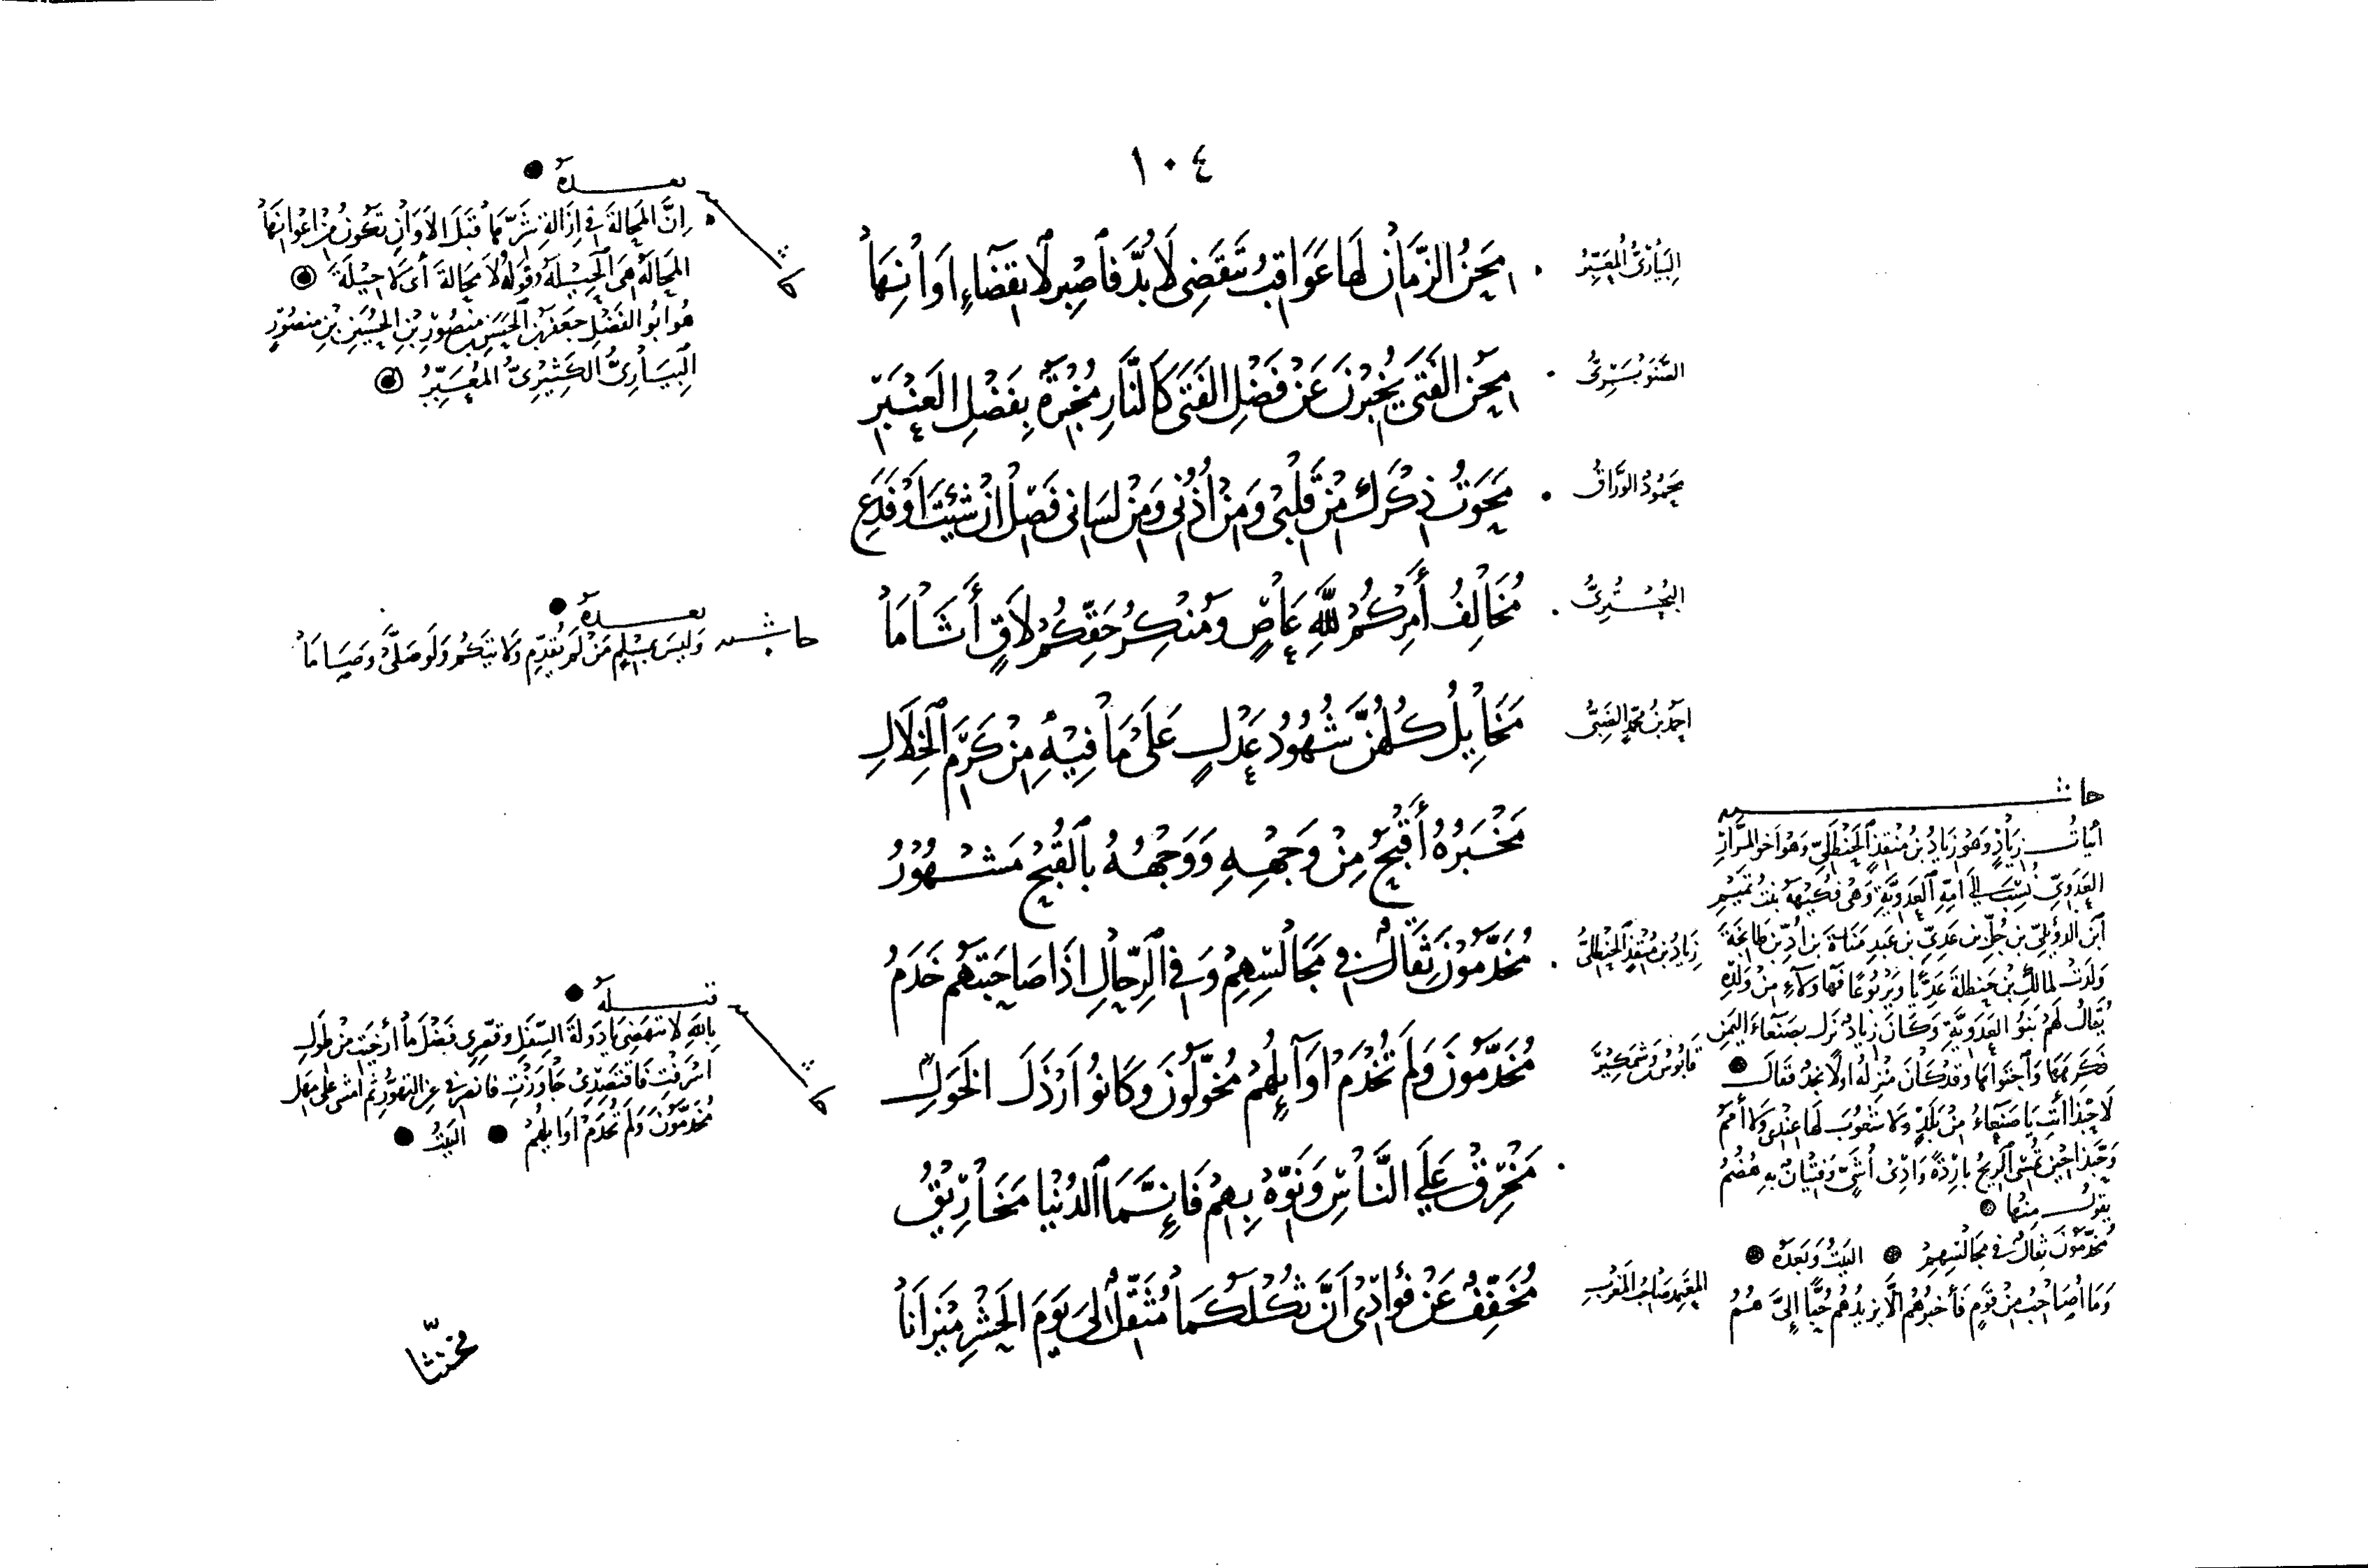 ١٠٤
البَيَاريُّ المُعَبِّرُ
مِحَنُ الزَّمَانِ لَهَا عَوَاقِبُ تَنقَضِي لَابُدَّ فَاصْبِر لانقِضَاءِ اَوَانِهَا
الصَّنَوبَرِيُّ
مِحَنُ الفَتَى يُخْبِرْنَ عَنْ فَضْلِ الفَتَى كَالنَّارِ مُخْبِرَةٌ بِفَضْلِ العَنْبَرِ
مَحمُودُ الوَرَّاقُ
مَحَوْتُ ذِكْرَكَ مِنْ قَلْبِي وَمِنْ أُذُنِي وَمِنْ لِسَانِي فَصِلْ اِنْ شِئْتَ اَوْ فَدَعِ
البُحْتُرِيُّ
مُخَالِفُ أَمْرِكُمْ للهِ عَاصٍ وَمُنْكِرُ حَقِّكُمْ لَاقٍ أَثَامَا
احمدُ بنُ محمّدٍ الضَبِّيُّ
مَخَايِلُ كُلُّهُنَّ شُهُودُ عَدْلٍ عَلَى مَا فِيْهِ مِنْ كَرَمِ الخِلَالِ
مَخْبَرُهُ أَقْبَحُ مِنْ وَجْهِهِ وَوَجْهُهُ بِالقُبْحِ مَشْهُوْرُ
زيَادُ بن مُنْقِذٍ الحَنْظَلِيُّ
مُخَدَّمُوْنَ ثِقَالٌ فِي مَجَالِسِهِمْ وَفِي الرِّحَالِ اِذَا صَاحَبْتَهُمْ خَدَمُ
قَابُوسُ وَشْمَكِيْرَ
مُخَدَّمُوْنَ وَلَمْ تُخْدَمْ اَوَآئِلُهُمْ مُخَوَّلُونَ وَكَانُوا اَرْذَلَ الخَوَلِ
مَخْرِقْ عَلَى النَّاسِ وَنَوِّهْ بِهِمْ فَاِنَّمَا الدُنْيَا مَخَارِيْقُ
مُخَفِّفٌ عَنْ فُؤَادِيْ اَنَّ ثُكْلَكُمَا مُثَقِّلٌ لِي يَوْمَ الحَشْرِ مِيْزَانَا
بعـــدهُ
اِنَّ المَحَالَةَ فِي اِزَالَةِ شَرِّهَا قَبْلَ الأَوَانِ تَكُونُ مِنْ اَعْوَانِهَا
المَحَالَةُ هِيَ الحِيْلَةُ وَقَولُهُ لاَ مَحَالَةَ أي لا حِيْلَةَ
هُوَ ابُو الفَضْلِ جَعفَرُ بن الحَسَنِ بن مَنصُوْرِ بْنِ الحُسَينِ بْنِ مَنصُوْرٍ
البَيَارِيُّ الكَثِيْرِيُّ المُعَبِّرُ
بعـــدهُ
حاشية وَلَيسَ بِمُسْلِمٍ مَنْ لَمْ يُقَدِّم وَلايَتَكُمْ وَلَو صَلَّى وَصَامَا
قبـــلهُ
بِاللهِ لا تنهَضِي يَا دَولَةَ السِّفَلِ وقَصِّرِي فَضْلَ مَا أَرْخَيتِ مِنْ طِوَلِ
اَسْرَفتِ فَاقتَصِدِي جَاوَزْتِ فَانصَرِفي عَنِ التَهَوُّرِ ثُمَّ امْشِي عَلَى مَهَلِ
مُخَدَّمُونَ وَلَمْ تُخدَمْ اَوَايلُهمُ البَيْتُ
حاشية
أبيَاتُ زيَادٍ وَهُوَ زيَادُ بنُ مُنْقِذٍ الحَنْظَلِيّ وَهُوَ اَخُو المَرَّارِ
العَدَوِيّ نُسِبَ إلَى اُمِّهِ العَدَوِيَّةِ وَهِيَ فُكَيْهَةُ بنتُ تَمِيْمِ
ابْنِ الدُؤَلِ بنِ جُلِّ بن عَدِيِّ بن عَبدِ مَنَاةَ بن اُدِّ بن طَابِخَةَ
وَلَدَتْ لِمَالِكِ بْنِ حَنظَلَةَ عَدِيًّا وَيَرْبُوعًا فَهَؤلآءِ مِنْ وَلَدِهِ
يُقَالُ لَهُمْ بَنُو العَدَوِيَّةِ وَكَانَ زيَادٌ نَزَلَ بصَنْعَاءَ اليَمَنِ
فَكَرِهَهَا وَاجْتَوَاهَا وَقَدْ كَانَ مَنْزِلُهُ اولاً بنَجْدٍ فَقَالَ
لاَ حَبَّذَا أنتِ يَا صَنْعَاءُ مِنْ بَلَدٍ وَلا شَعُوبَ لَهَا عِنْدِي وَلا أُمَمُ
وَحَبَّذَا حِيْنَ تُمْسِي الرِيحُ بَارِدَةً وَادِي أُشَيّ وَفِتْيَانٌ بِهِ هُضُمُ
يقولُ منها
مُخَدَّمُوْنَ ثِقَالٌ فِي مَجَالِسِهِمْ البَيْتُ وَبَعدَهُ
وَمَا أُصَاحِبُ مِنْ قَوْمٍ فَأَخبُرُهُمْ إلَّا يَزيدُهُم حُبًّا إِلَيَّ هُمُ